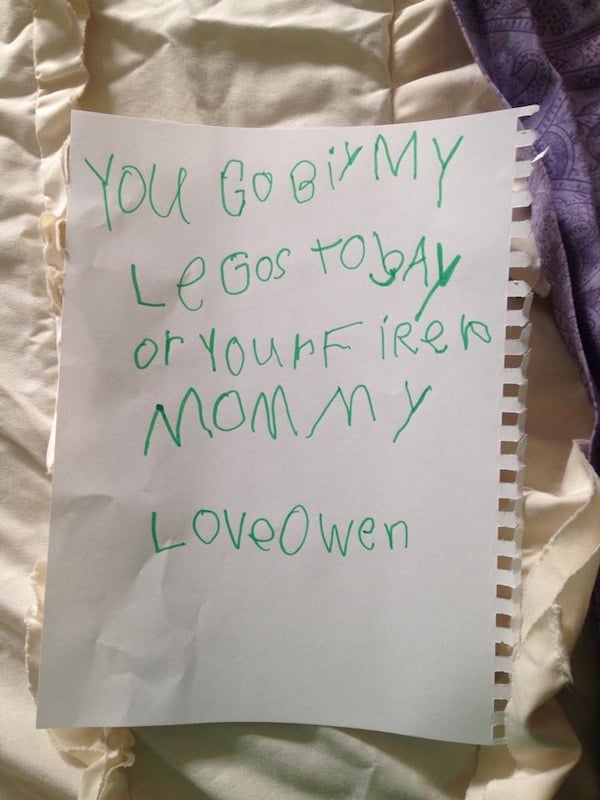 YOU GO BiY MY
LeGos TObAY
or YourFiReD
MOMMY
LoveOwen